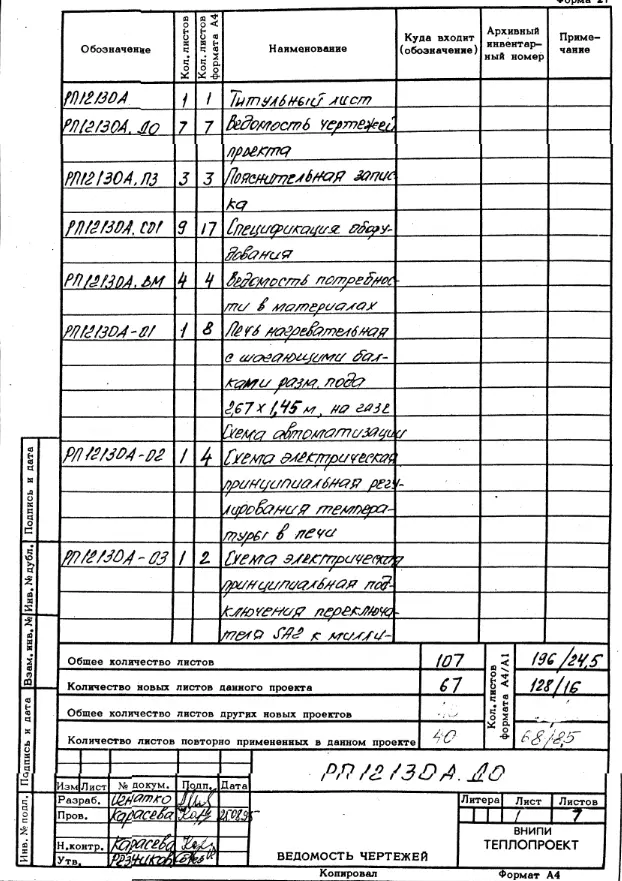 Форма 21
Обозначение Кол. листов Кол. листов формата А4 Наименование Куда входит (обозначение) Архивный инвентарный номер Примечание
РП12130А 1 1 Титульный лист
РП12130А.ДО 7 7 Ведомость чертежей
проекта
РП12130А.ПЗ 3 3 Пояснительная запис
ка
РП12130А.СО1 9 17 Спецификация обору-
дования
РП12130А.ВМ 4 4 Ведомость потребнос-
ти в материалах
РП12130А-01 1 8 Печь нагревательная
с шагающими бал-
ками разм. пода
2,67 х 1,45 м, на газе
Схема автоматизации
РП12130А-02 1 4 Схема электрическая
принципиальная регу-
лирования темпера-
туры в печи
РП12130А-03 1 2 Схема электрическая
принципиальная под-
ключения переключа-
теля SA2 к милли-
Общее количество листов 107 Кол. листов формата А4/А1 196/24,5
Количество новых листов данного проекта 67 128/16
Общее количество листов других новых проектов
Количество листов повторно примененных в данном проекте 40 68/8,5
Подпись и дата
Инв. № дубл.
Взам. инв. №
Подпись и дата
Инв. № подл.
РП12130А.ДО
Изм Лист № докум. Подп. Дата
Разраб. Игнатко
Пров. Карасева 25.08.95
Н.контр. Карасева
Утв. Резчиков
ВЕДОМОСТЬ ЧЕРТЕЖЕЙ
Литера Лист Листов
1 7
ВНИПИ
ТЕПЛОПРОЕКТ
Копировал Формат А4